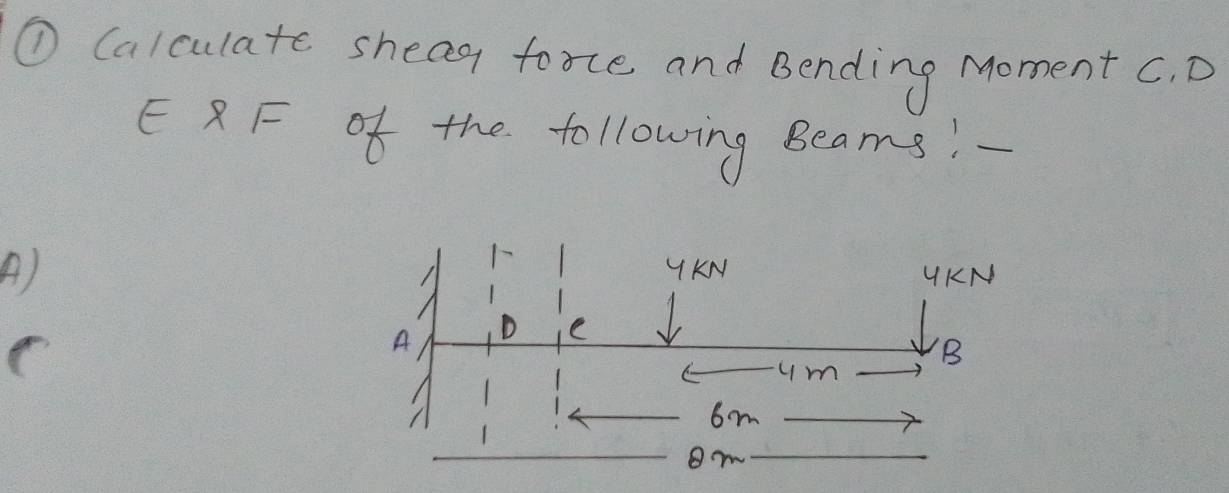 ① Calculate shear force and Bending Moment C, D
E & F of the following Beams:-
A)
4KN
4KN
D
C
A
B
4m
6m
8m